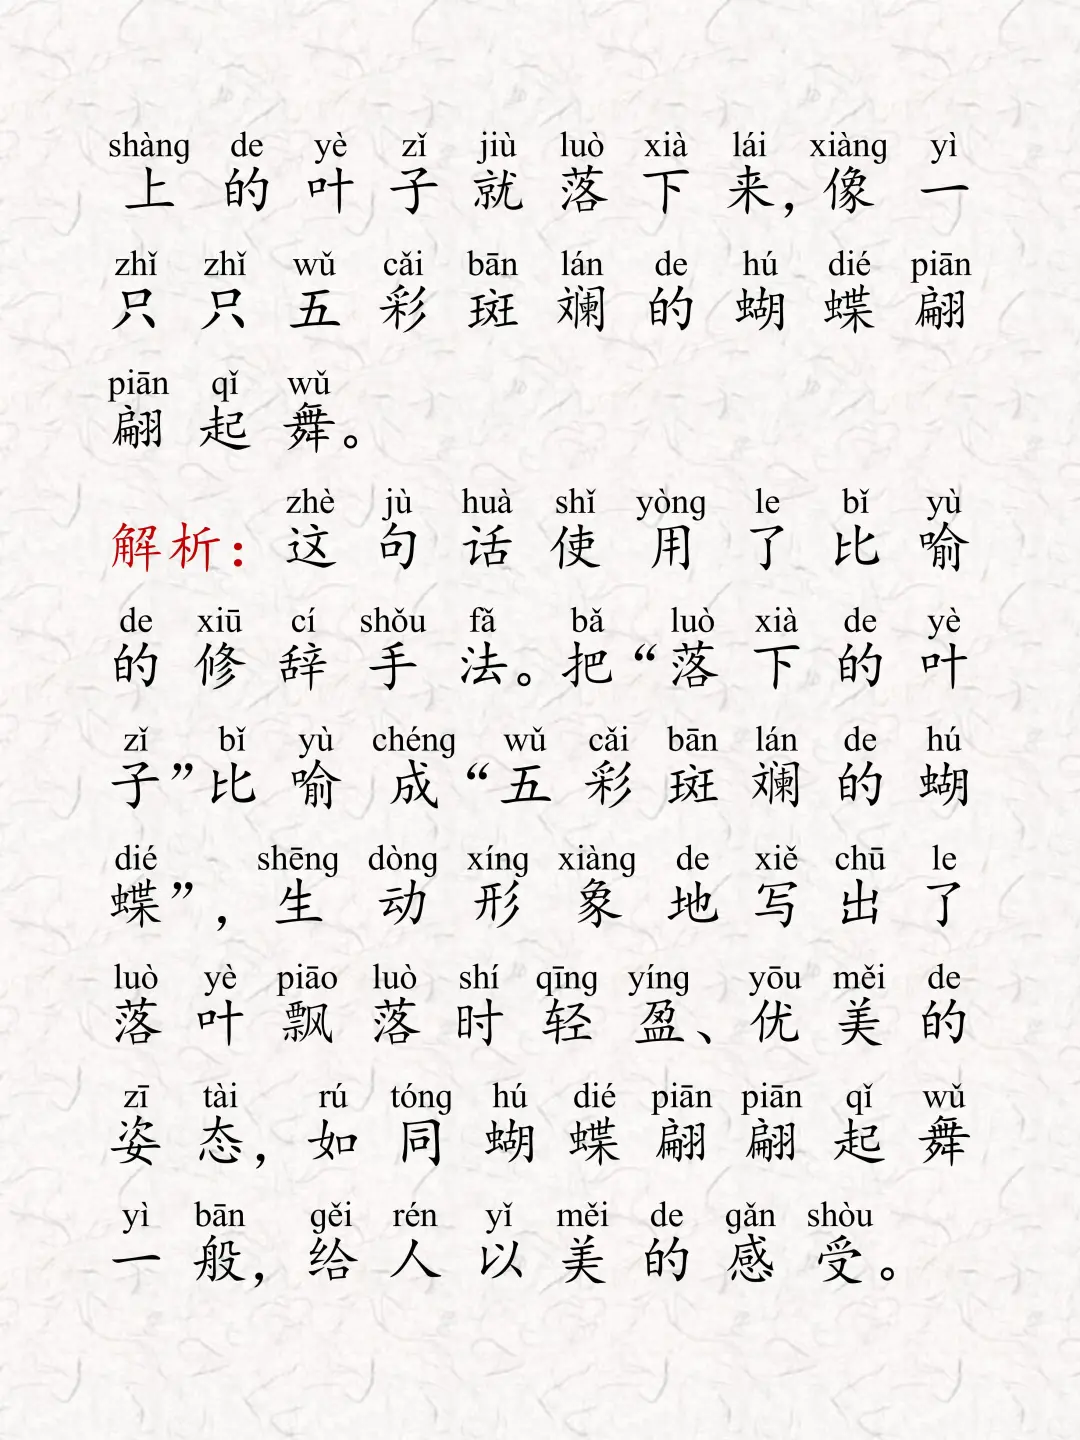 shàng de yè zǐ jiù luò xià lái xiàng yì
上的叶子就落下来，像一
zhǐ zhǐ wǔ cǎi bān lán de hú dié piān
只只五彩斑斓的蝴蝶翩
piān qǐ wǔ
翩起舞。
zhè jù huà shǐ yòng le bǐ yù
解析：这句话使用了比喻
de xiū cí shǒu fǎ bǎ luò xià de yè
的修辞手法。把“落下的叶
zǐ bǐ yù chéng wǔ cǎi bān lán de hú
子”比喻成“五彩斑斓的蝴
dié shēng dòng xíng xiàng de xiě chū le
蝶”，生动形象地写出了
luò yè piāo luò shí qīng yíng yōu měi de
落叶飘落时轻盈、优美的
zī tài rú tóng hú dié piān piān qǐ wǔ
姿态，如同蝴蝶翩翩起舞
yì bān gěi rén yǐ měi de gǎn shòu
一般，给人以美的感受。